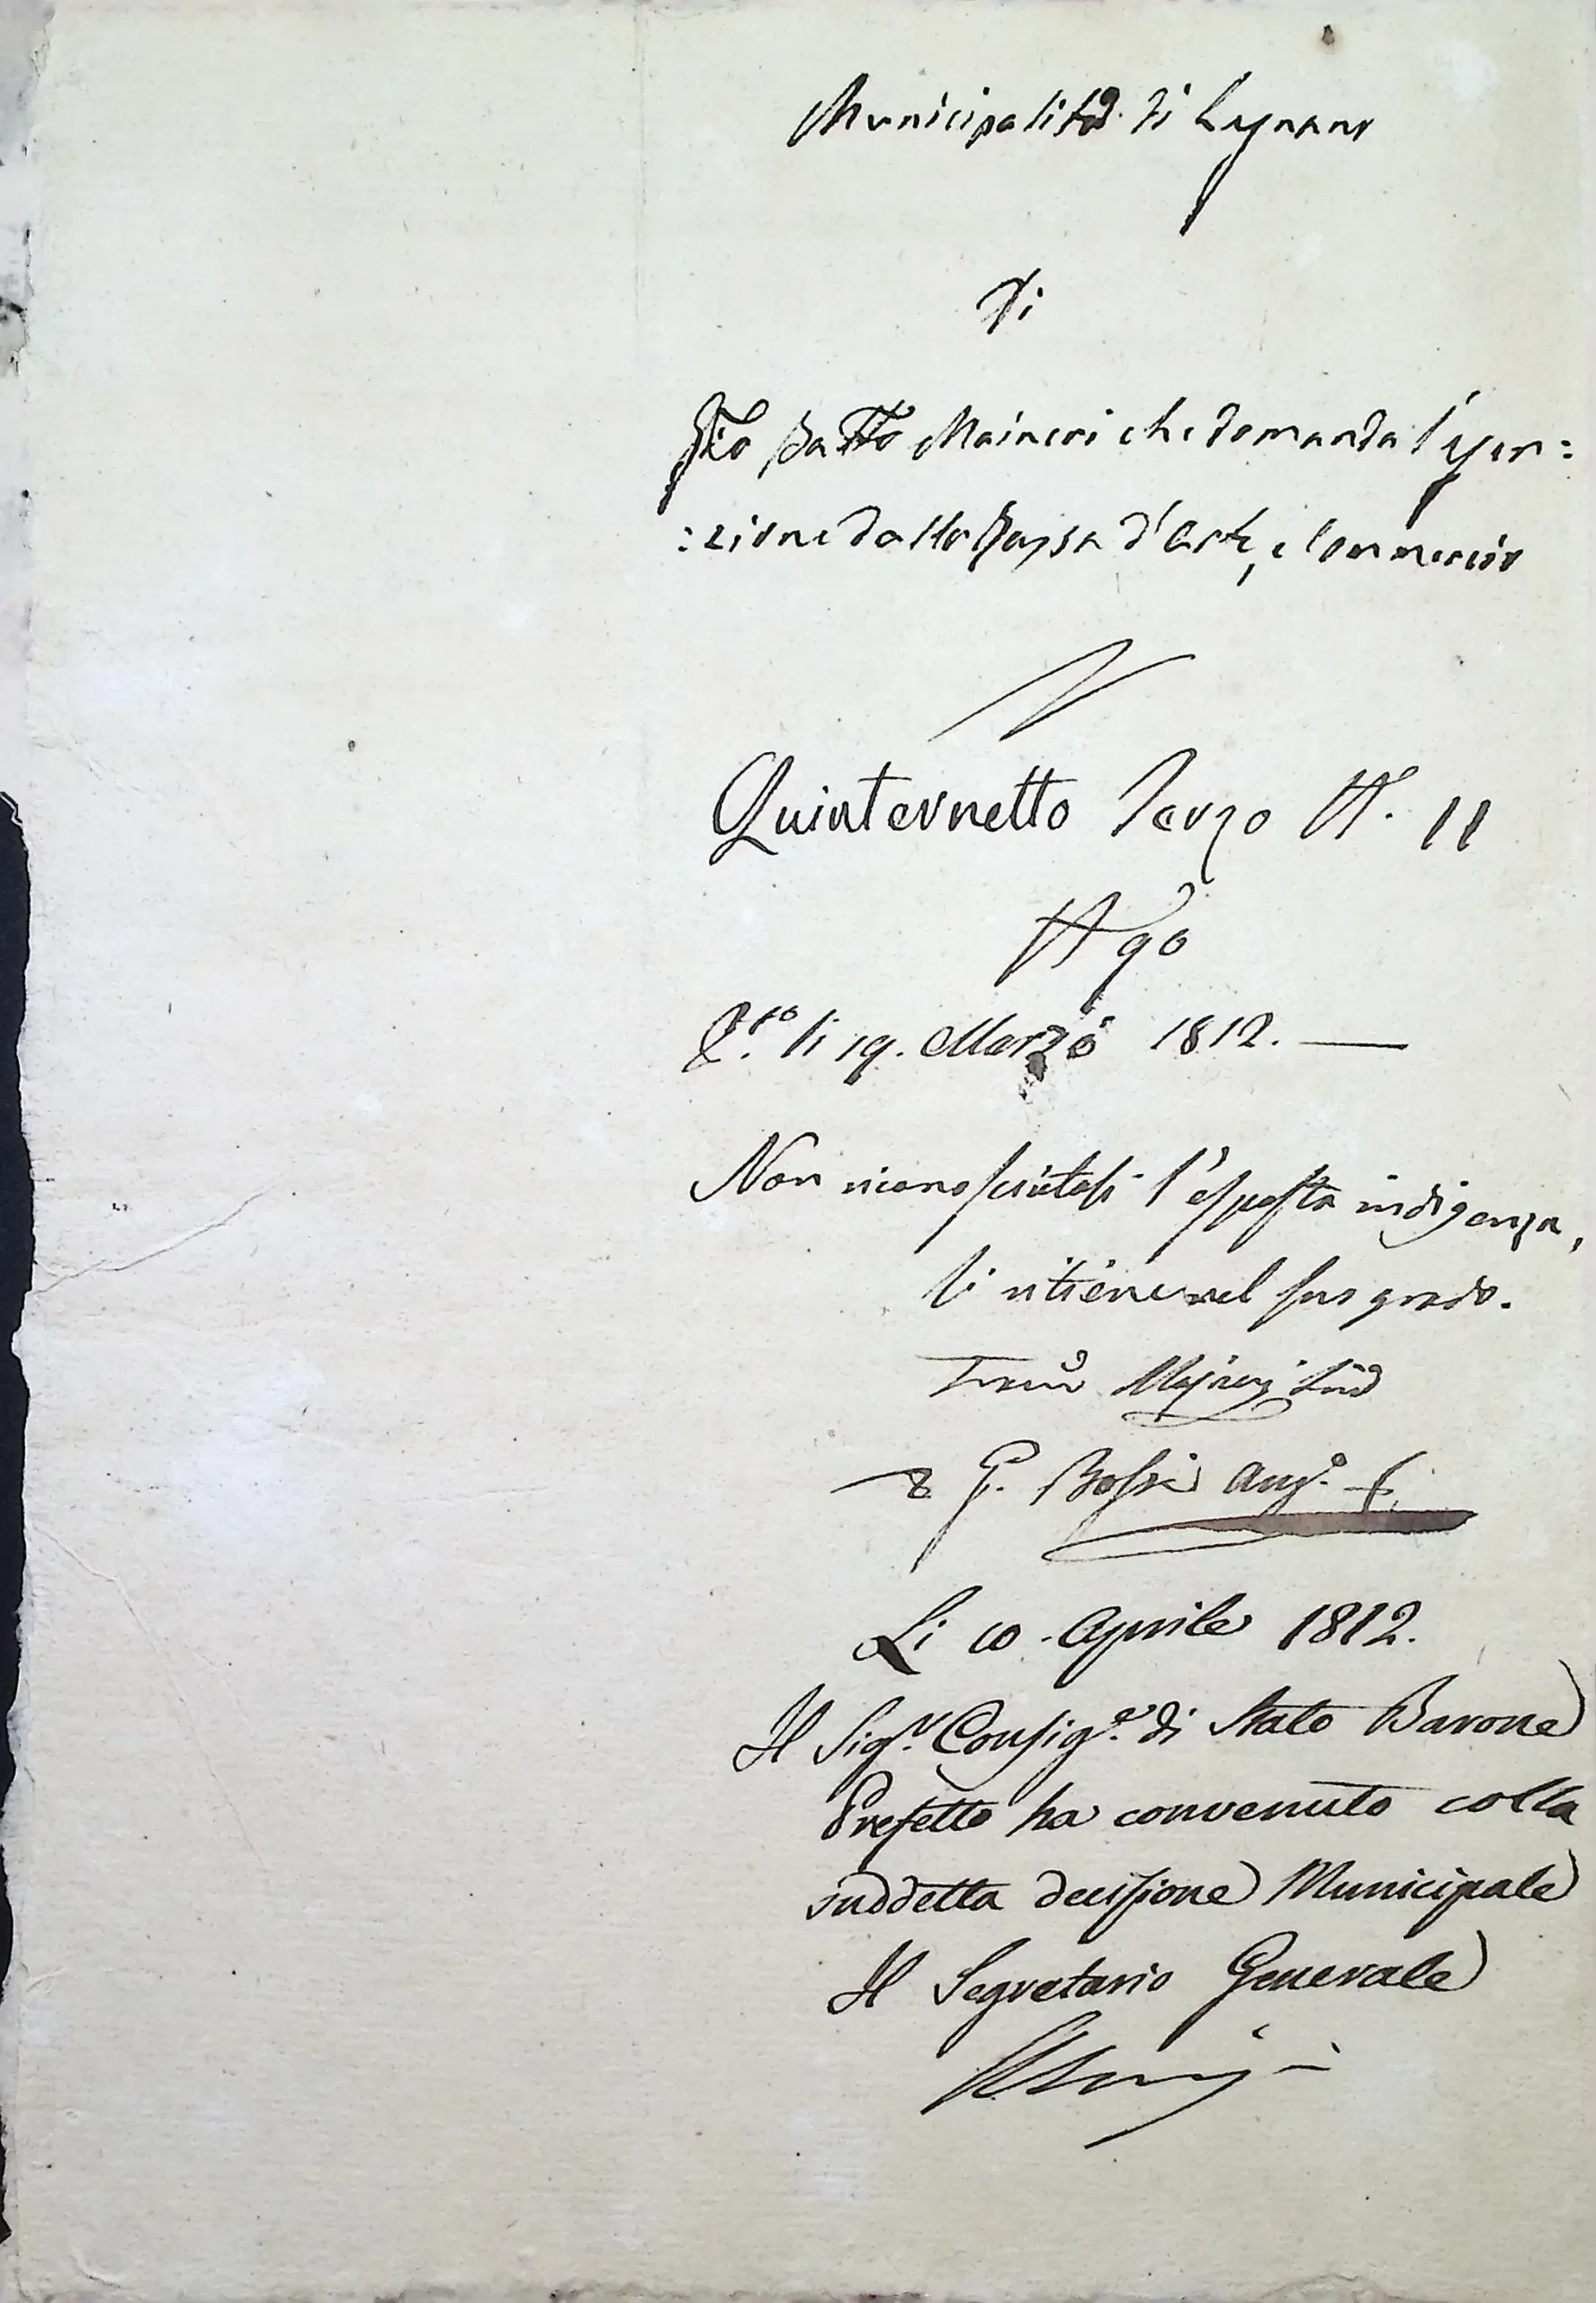 Municipalità di Legnano
Di
Gio Batta Maineri che domanda l'esen:
:zione dalla Tassa d'Arte, e Commercio
Quinternetto Terzo N. 11
N 90
li 19. Marzo 1812. —
Non riconosciutasi l'esposta indigenza,
si ritiene nel suo grado.
Sind
G. Bossi Agg.º
Li 10. Aprile 1812.
Il Sigr. Consige. di Stato Barone
Prefetto ha convenuto colla
suddetta decisione Municipale
Il Segretario Generale